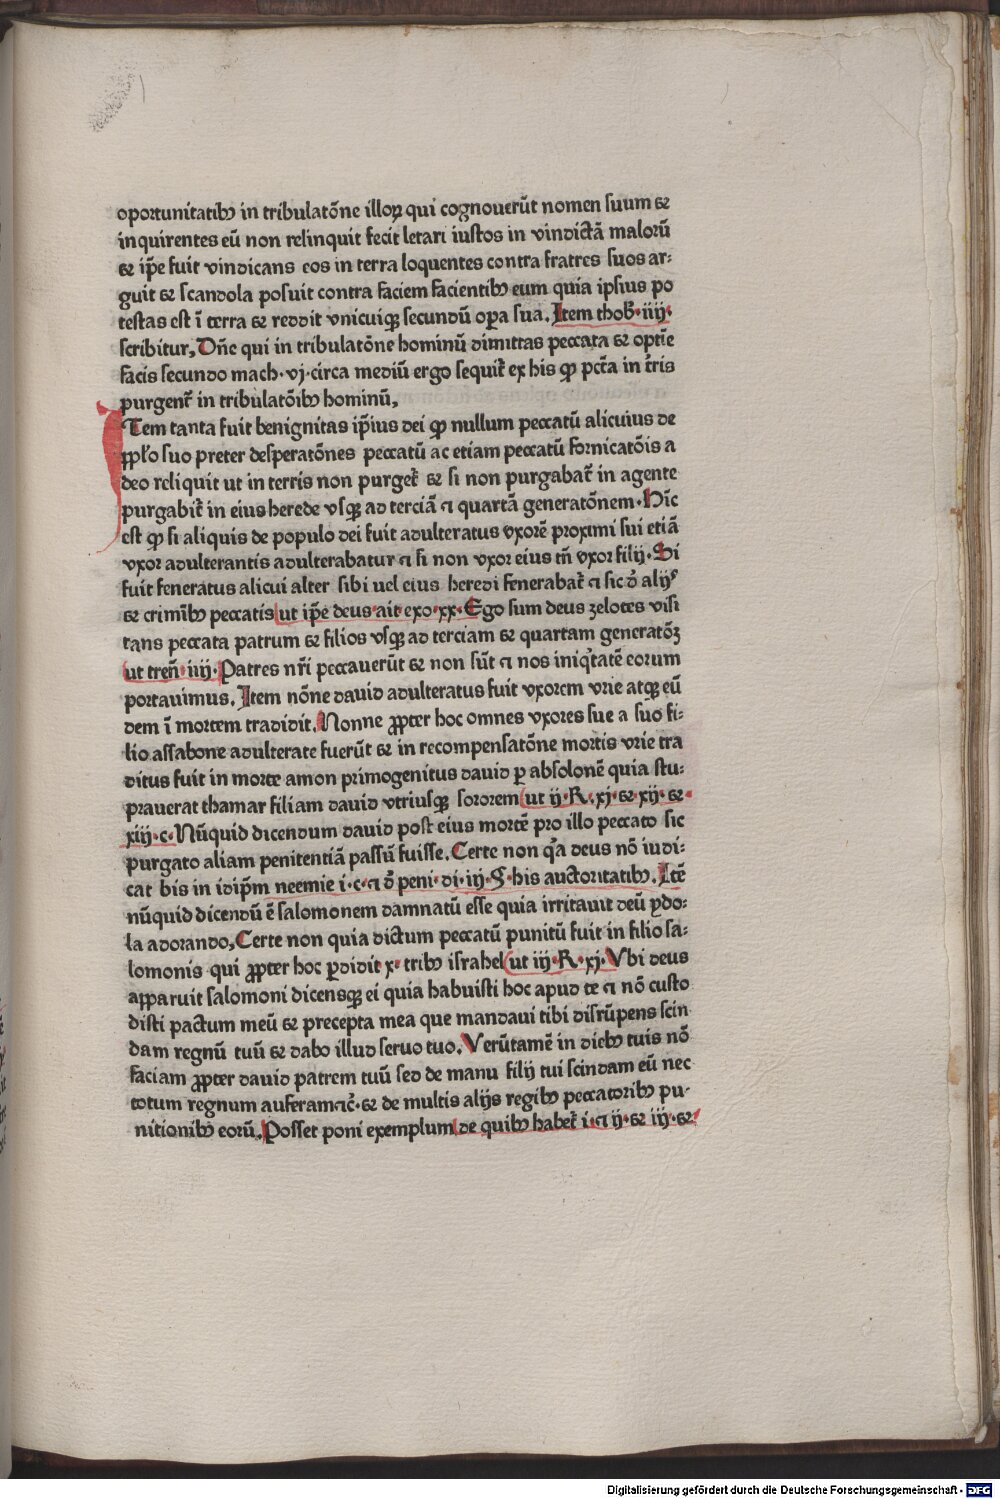 oportunitatibꝫ in tribulatōne illoꝝ qui cognouerūt nomen suum ⁊
inquirentes eū non relinquit fecit letari iustos in vindictā malorū
⁊ ip̄e fuit vindicans eos in terra loquentes contra fratres suos ar⸗
guit ⁊ scandola posuit contra faciem facientibꝫ eum quia ipsius po
testas est ī terra ⁊ reddit vnicuiqꝫ secundū oꝑa sua. Item thob̄·iiij·
scribitur, Dn̄e qui in tribulatōne hominū dimittas peccata ⁊ optīe
facis secundo mach·vj·circa mediū ergo sequit̄ ex his ꝙ pctā in tr̄ris
purgent̄ in tribulatōibꝫ hominū,
ITem tanta fuit benignitas ip̄ius dei ꝙ nullum peccatū alicuius de
ppl̄o suo preter desperatōnes peccatū ac etiam peccatū fornicatōis a
deo reliquit ut in terris non purget̄ ⁊ si non purgabat̄ in agente
purgabit̄ in eius herede vsqꝫ ad terciā ⁊ quartā generatōnem·Hīc
est ꝙ si aliquis de populo dei fuit adulteratus vxorē proximi sui etiā
vxor adulterantis adulterabatur ⁊ si non vxor eius tn̄ vxor filij·Si
fuit feneratus alicui alter sibi uel eius heredi fenerabat̄ ⁊ sic d̄ alijs
⁊ crimībꝫ peccatis ut ip̄e deus ait exo·xx·Ego sum deus zelotes visi
tans peccata patrum ⁊ filios vsqꝫ ad terciam ⁊ quartam generatōꝫ
ut tren̄·iiij·Patres nr̄i peccauerūt ⁊ non sūt ⁊ nos iniq̇tatē eorum
portauimus. Item nōne dauid adulteratus fuit vxorem vrie atqꝫ eū
dem ī mortem tradidit. Nonne ꝓpter hoc omnes vxores sue a suo fi⸗
lio assabone adulterate fuerūt ⁊ in recompensatōne mortis vrie tra
ditus fuit in morte amon primogenitus dauid ꝑ absolonē quia stu⸗
prauerat thamar filiam dauid vtriusqꝫ sororem ut ij·R·xj·⁊ xij·⁊·
xiij·c·Nūquid dicendum dauid post eius mortē pro illo peccato sic
purgato aliam penitentiā passū fuisse. Certe non q̇a deus nō iudi⸗
cat bis in idip̄m neemie i·c·⁊ d̄ peni·di·iij·§·his auctoritatibꝫ. Itē
nūquid dicendū ē salomonem damnatū esse quia irritauit deū ydo⸗
la adorando, Certe non quia dictum peccatū punitū fuit in filio sa⸗
lomonis qui ꝓpter hoc ꝑdidit x·tribꝫ israhel ut iij·R·xj·Vbi deus
apparuit salomoni dicensqꝫ ei quia habuisti hoc apud te ⁊ nō custo
disti pactum meū ⁊ precepta mea que mandaui tibi disrūpens scin
dam regnū tuū ⁊ dabo illud seruo tuo. Verūtamē in diebꝫ tuis nō
faciam ꝓpter dauid patrem tuū sed de manu filij tui scindam eū nec
totum regnum auferam ⁊c̄·⁊ de multis alijs regibꝫ peccatoribꝫ pu⸗
nitionibꝫ eorū. Posset poni exemplum de quibꝫ habet̄ i·⁊ ij·⁊ iij·⁊
Digitalisierung gefördert durch die Deutsche Forschungsgemeinschaft - DFG